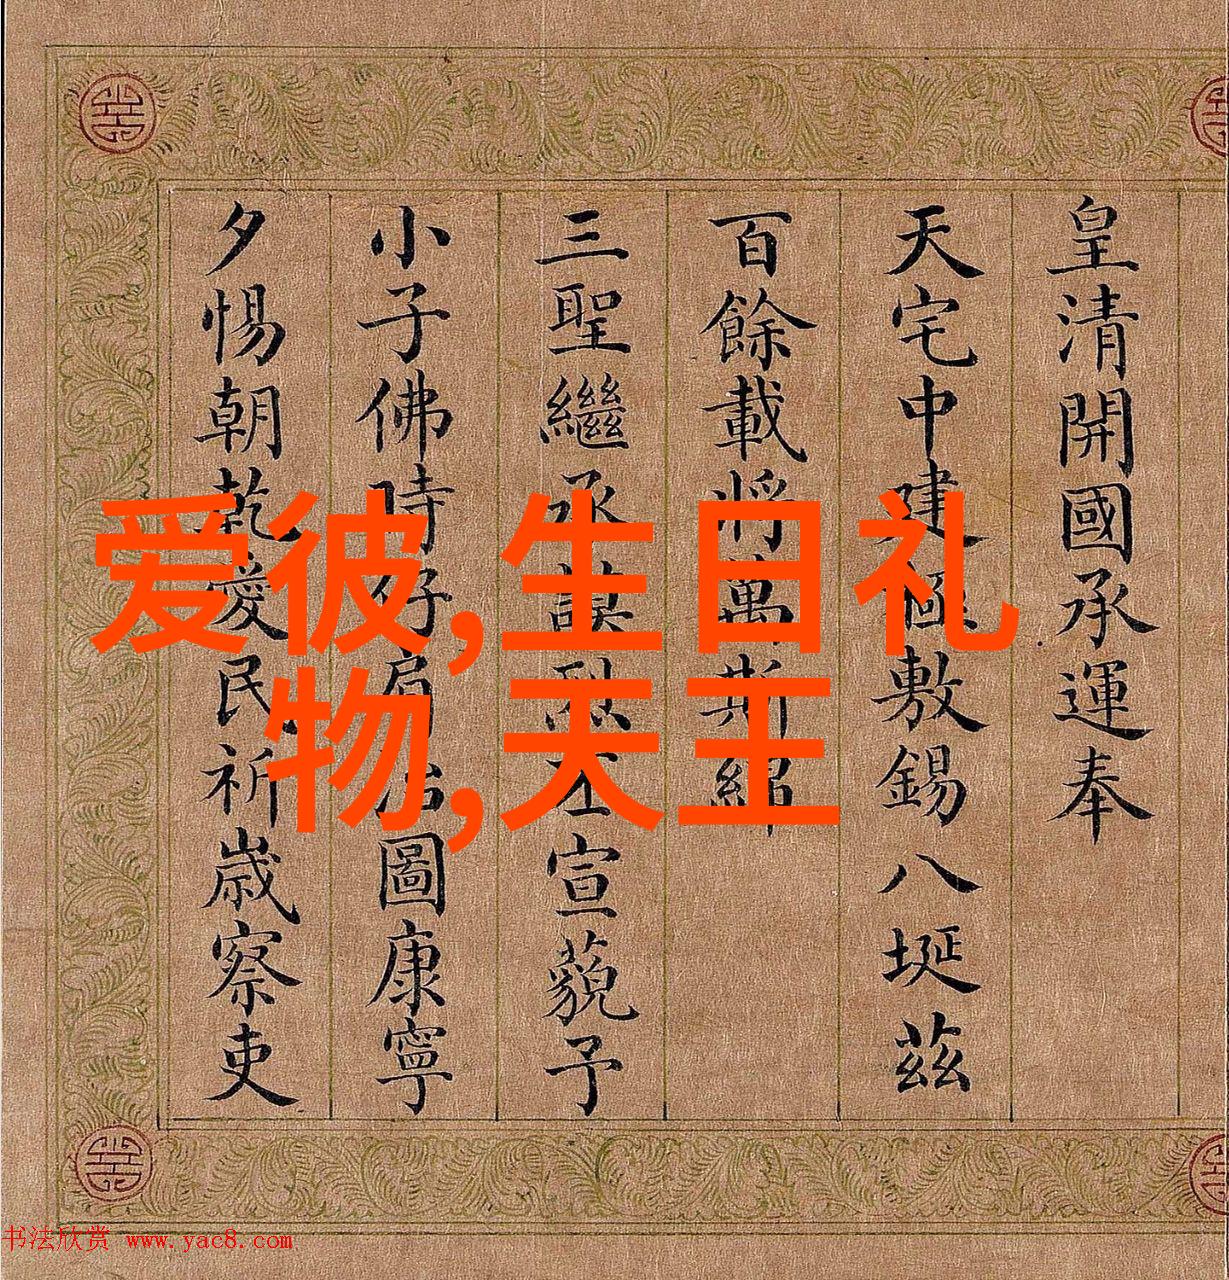 皇清開國承運奉
天宅中建極敷錫八埏茲
百餘載將萬斯
三聖繼承謨烈丕宣藐予
小子佛時仔肩治圖康寧
夕惕朝乾愛民祈歲察吏
爱彼,生日礼
物,天王
书法欣赏 www.yac8.com